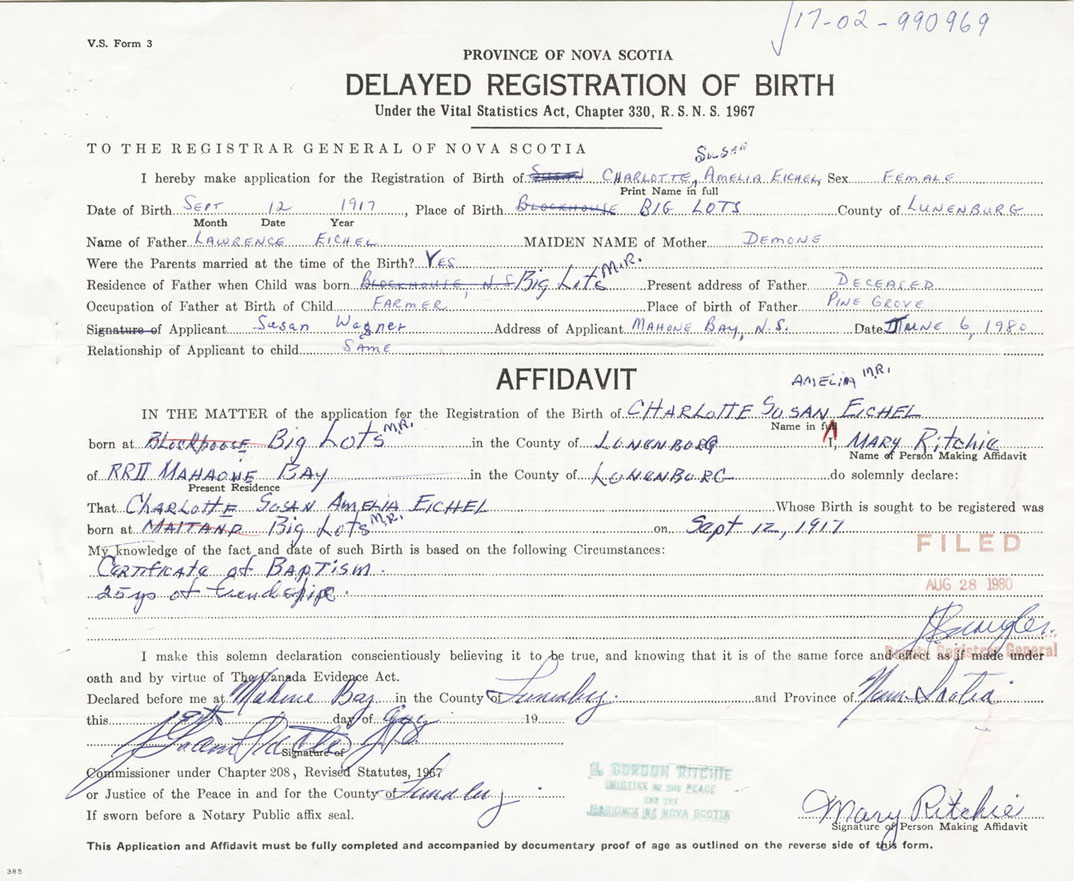 17-02-990969
V.S. Form 3
PROVINCE OF NOVA SCOTIA
DELAYED REGISTRATION OF BIRTH
Under the Vital Statistics Act, Chapter 330, R.S.N.S. 1967
TO THE REGISTRAR GENERAL OF NOVA SCOTIA
SUSAN
I hereby make application for the Registration of Birth of SUSAN CHARLOTTE, AMELIA EICHEL, Sex FEMALE
Print Name in full
Date of Birth SEPT 12 1917, Place of Birth BLOCKHOUSE BIG LOTS County of LUNENBURG
Month Date Year
Name of Father LAWRENCE EICHEL MAIDEN NAME of Mother DEMONE
Were the Parents married at the time of the Birth? YES
Residence of Father when Child was born BLOCKHOUSE, N.S Big Lots M.R. Present address of Father DECEASED
Occupation of Father at Birth of Child FARMER Place of birth of Father PINE GROVE
Signature of Applicant Susan Wagner Address of Applicant MAHONE BAY, N.S. Date JUNE 6, 1980
Relationship of Applicant to child SAME
AFFIDAVIT
AMELIA M.R.
IN THE MATTER of the application for the Registration of the Birth of CHARLOTTE SUSAN EICHEL
Name in full
born at Blockhouse Big Lots M.R. in the County of LUNENBURG I, MARY Ritchie
Name of Person Making Affidavit
of RRII MAHAONE BAY in the County of LUNENBURG do solemnly declare:
Present Residence
That CHARLOTTE SUSAN AMELIA EICHEL Whose Birth is sought to be registered was
born at MAITLAND Big Lots M.R. on Sept 12, 1917
My knowledge of the fact and date of such Birth is based on the following Circumstances:
FILED
Certificate of BAPTISM.
AUG 28 1980
25 yrs of
Deputy Registrar General
I make this solemn declaration conscientiously believing it to be true, and knowing that it is of the same force and effect as if made under
oath and by virtue of The Canada Evidence Act.
Declared before me at Mahone Bay in the County of Lunenburg and Province of Nova Scotia
this day of 19
Signature of
Commissioner under Chapter 208, Revised Statutes, 1967
or Justice of the Peace in and for the County of Lunenburg
If sworn before a Notary Public affix seal.
G. GORDON RITCHIE
JUSTICE OF THE PEACE
PROVINCE OF NOVA SCOTIA
Mary Ritchie
Signature of Person Making Affidavit
This Application and Affidavit must be fully completed and accompanied by documentary proof of age as outlined on the reverse side of this form.
385